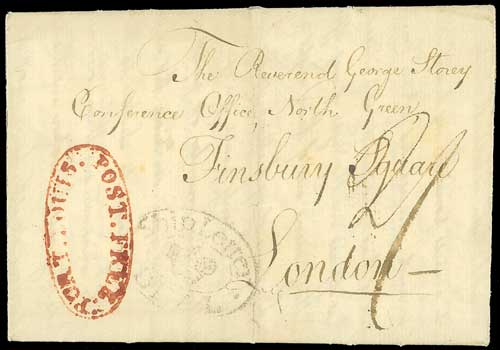 The Reverend George Storey
Conference Office, North Green
Finsbury Square
London
PORT LOUIS. POST. FREE.
Ship Letter